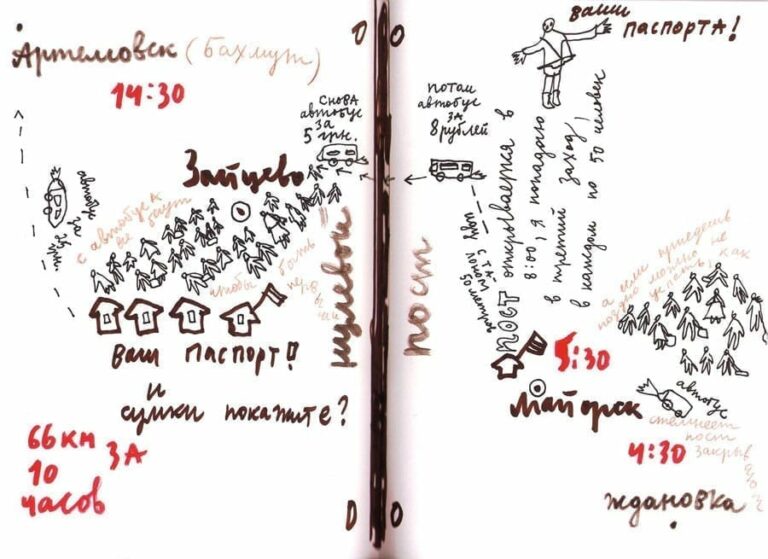 Артемовск (Бахмут)
14:30
снова
автобус
за
5 грн.
Зайцево
автобус
за
с автобуса
все бегут
чтобы быть
Ваш паспорт!
и
сумки покажите?
66 км
за
10
часов
нулевой
пост
ваши
паспорта!
потом
автобус
за
8 рублей
пост открывается в
8:00, я попадаю
в третий заход,
в каждом по 50 человек
потом иду
5:30
Майорск
а если приедешь
поздно можно не
успеть, как
автобус
стемнеет
пост
закрыв
4:30
Ждановка